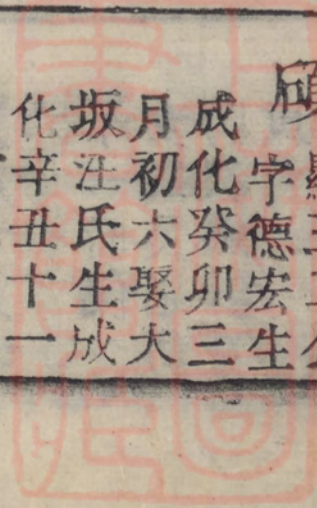 字德宏生
成化癸卯三
月初六娶大
坂汪氏生成
化辛丑十一